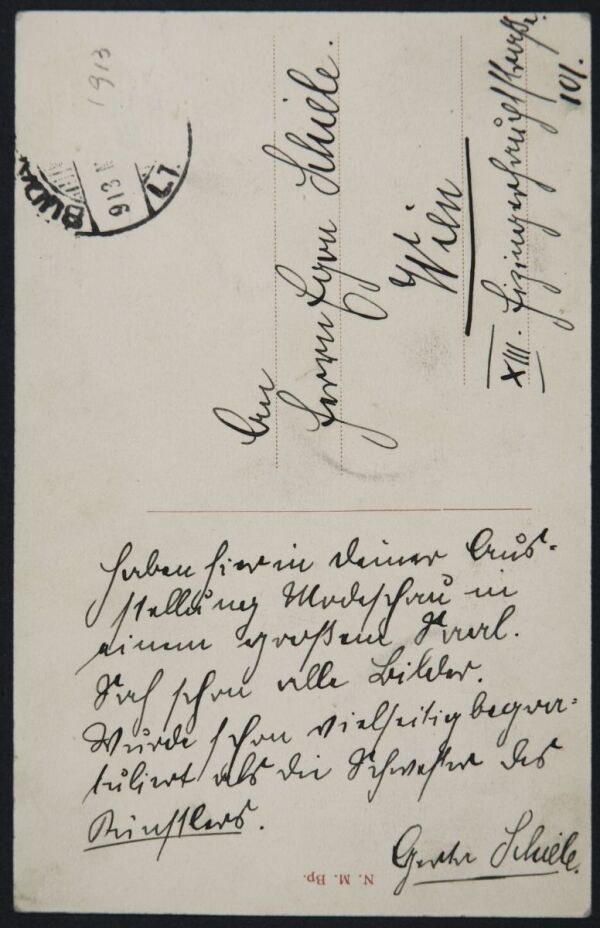 1913
BUDA
913
L7.
An
Herrn Egon Schiele.
Wien
XIII. Hizingerhauptstraße
101.
haben hier in deiner Aus-
stellung Modeschau in
einem großem Saal.
Sah schon alle Bilder.
Wurde schon vielseitig begra-
tuliert als die Schwester des
Künstlers.
Gerta Schiele.
N. M. Bp.